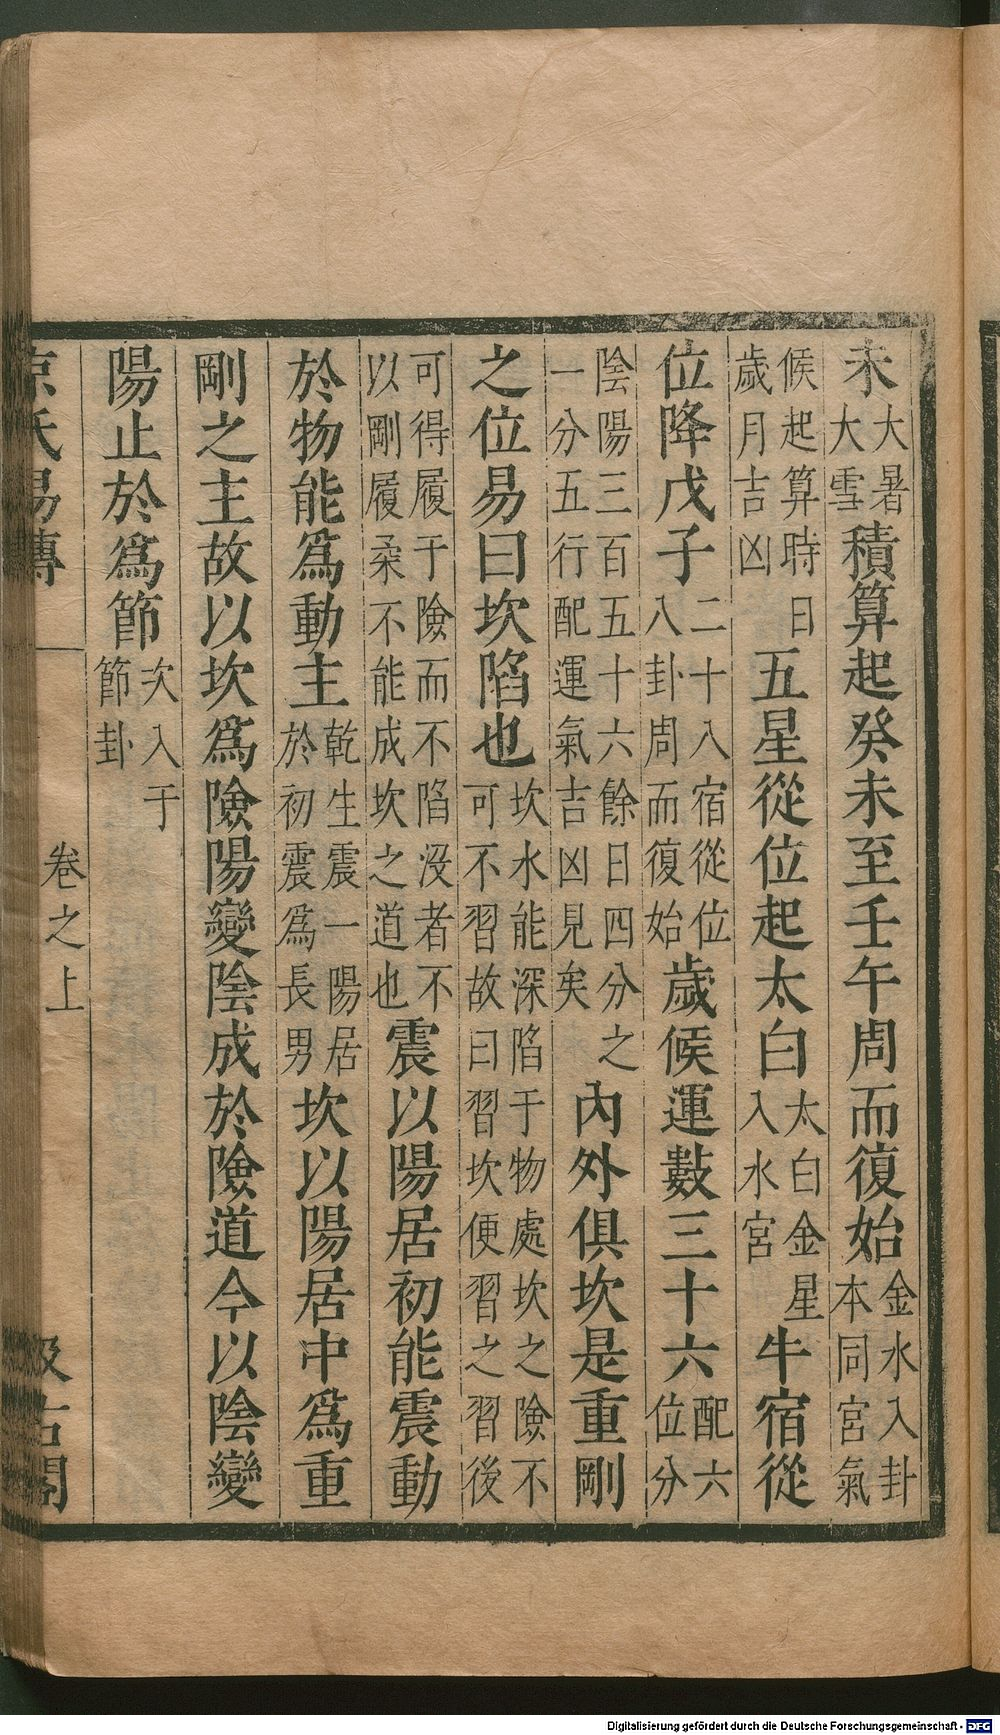 未大暑大雪積算起癸未至壬午周而復始金水入卦本同宮氣
候起算時日歲月吉凶五星從位起太白太白金星入水宮牛宿從
位降戊子二十八宿從位八卦周而復始歲候運數三十六配六位分
陰陽三百五十六餘日四分之一分五行配運氣吉凶見矣內外俱坎是重剛
之位易曰坎陷也坎水能深陷于物處坎之險不可不習故曰習坎便習之習後
可得履于險而不陷没者不以剛履柔不能成坎之道也震以陽居初能震動
於物能爲動主乾生震一陽居於初震爲長男坎以陽居中爲重
剛之主故以坎爲險陽變陰成於險道今以陰變
陽止於爲節次入于節卦
京氏易傳
卷之上
汲古閣
Digitalisierung gefördert durch die Deutsche Forschungsgemeinschaft - DFG